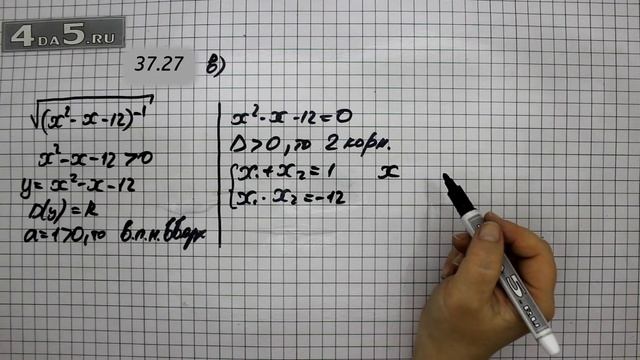 4DA5.RU
37.27 в)
√(x²-x-12)⁻¹
x²-x-12>0
y=x²-x-12
D(y)=R
a=1>0, то в.п.н.вверх
x²-x-12=0
D>0, то 2 корн.
{x₁+x₂=1 x
{x₁·x₂=-12